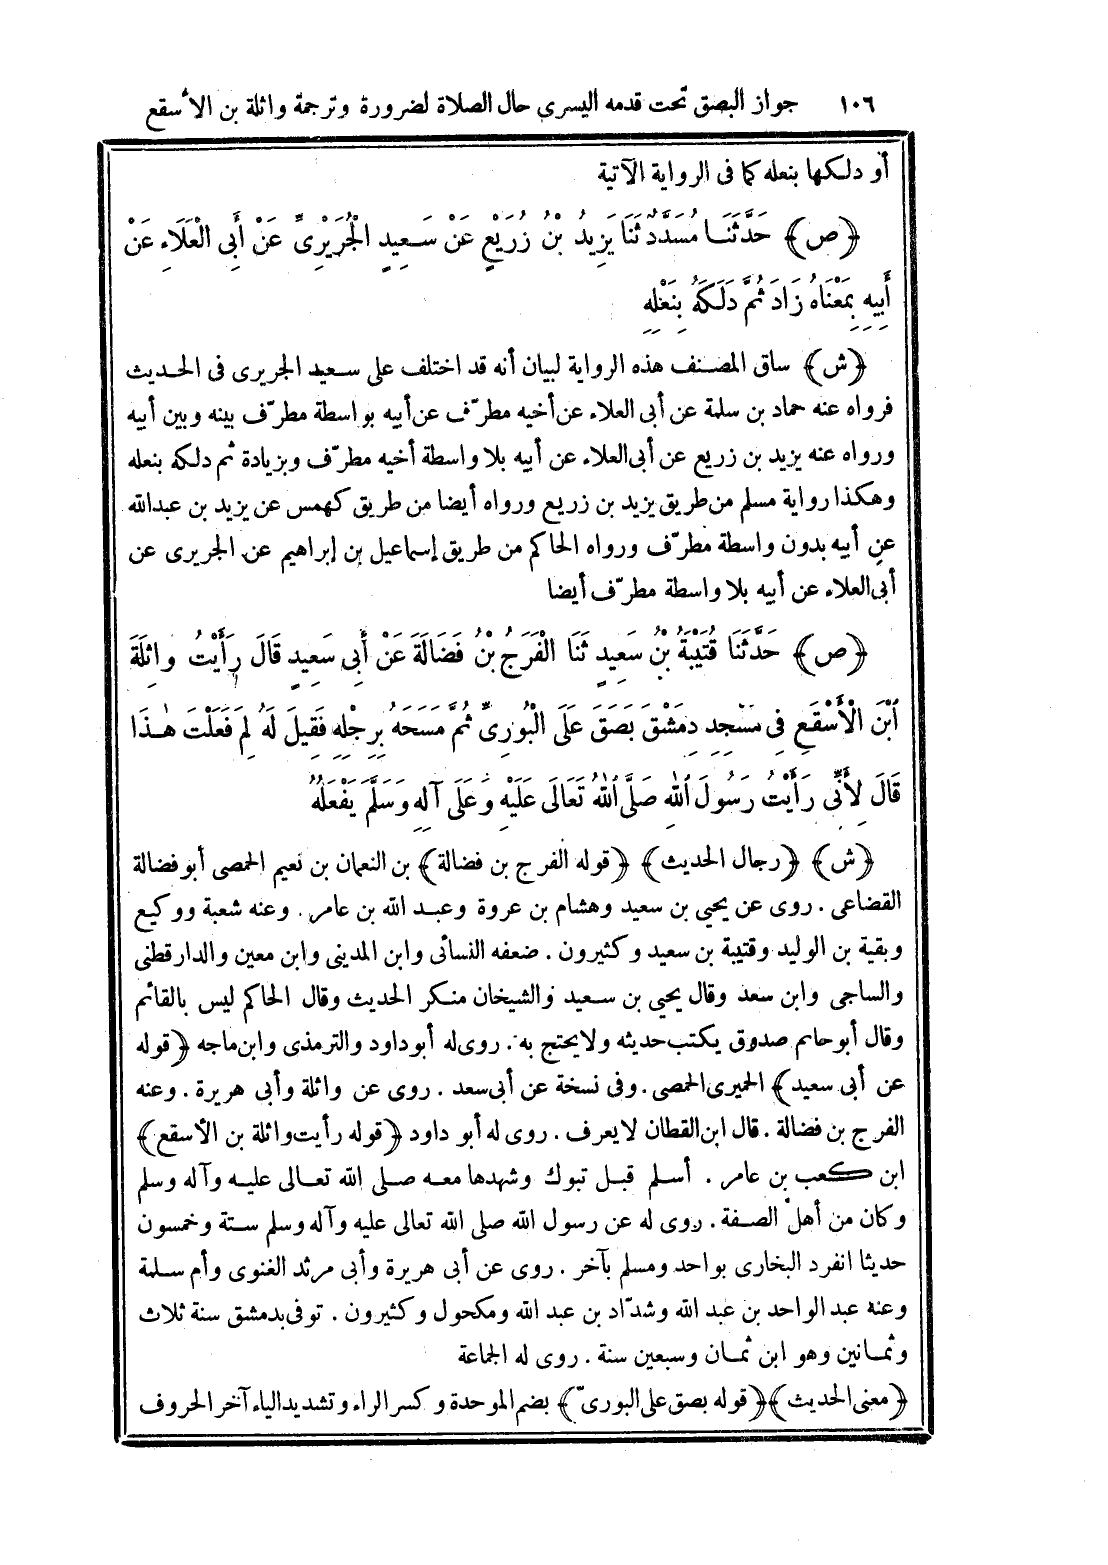 ١٠٦ جواز البصق تحت قدمه اليسرى حال الصلاة لضرورة وترجمة واثلة بن الأسقع
أو دلكها بنعله كما فى الرواية الآتية
﴿ص﴾ حَدَّثَنَا مُسَدَّدٌ ثَنَا يَزِيدُ بْنُ زُرَيْعٍ عَنْ سَعِيدٍ الْجُرَيْرِىِّ عَنْ أَبِى الْعَلَاءِ عَنْ
أَبِيهِ بِمَعْنَاهُ زَادَ ثُمَّ دَلَكَهُ بِنَعْلِهِ
﴿ش﴾ ساق المصنف هذه الرواية لبيان أنه قد اختلف على سعيد الجريرى فى الحديث
فرواه عنه حماد بن سلمة عن أبى العلاء عن أخيه مطرّف عن أبيه بواسطة مطرّف بينه وبين أبيه
ورواه عنه يزيد بن زريع عن أبى العلاء عن أبيه بلا واسطة أخيه مطرّف وبزيادة ثم دلكه بنعله
وهكذا رواية مسلم من طريق يزيد بن زريع ورواه أيضا من طريق كهمس عن يزيد بن عبدالله
عن أبيه بدون واسطة مطرّف ورواه الحاكم من طريق إسماعيل بن إبراهيم عن الجريرى عن
أبى العلاء عن أبيه بلا واسطة مطرّف أيضا
﴿ص﴾ حَدَّثَنَا قُتَيْبَةُ بْنُ سَعِيدٍ ثَنَا الْفَرَجُ بْنُ فَضَالَةَ عَنْ أَبِى سَعِيدٍ قَالَ رَأَيْتُ وَاثِلَةَ
ابْنَ الْأَسْقَعِ فِى مَسْجِدِ دِمَشْقَ بَصَقَ عَلَى الْبُورِىِّ ثُمَّ مَسَحَهُ بِرِجْلِهِ فَقِيلَ لَهُ لِمَ فَعَلْتَ هٰذَا
قَالَ لِأَنِّى رَأَيْتُ رَسُولَ اللهِ صَلَّى اللهُ تَعَالَى عَلَيْهِ وَعَلَى آلِهِ وَسَلَّمَ يَفْعَلُهُ
﴿ش﴾ ﴿رجال الحديث﴾ ﴿قوله الفرج بن فضالة﴾ بن النعمان بن نعيم الحمصى أبو فضالة
القضاعى. روى عن يحيى بن سعيد وهشام بن عروة وعبد الله بن عامر. وعنه شعبة ووكيع
وبقية بن الوليد وقتيبة بن سعيد وكثيرون. ضعفه النسائى وابن المدينى وابن معين والدارقطنى
والساجى وابن سعد وقال يحيى بن سعيد والشيخان منكر الحديث وقال الحاكم ليس بالقائم
وقال أبو حاتم صدوق يكتب حديثه ولا يحتج به. روى له أبو داود والترمذى وابن ماجه ﴿قوله
عن أبى سعيد﴾ الحميرى الحمصى. وفى نسخة عن أبى سعد. روى عن واثلة وأبى هريرة. وعنه
الفرج بن فضالة. قال ابن القطان لا يعرف. روى له أبو داود ﴿قوله رأيت واثلة بن الأسقع﴾
ابن كعب بن عامر. أسلم قبل تبوك وشهدها معه صلى الله تعالى عليه وآله وسلم
وكان من أهل الصفة. روى له عن رسول الله صلى الله تعالى عليه وآله وسلم ستة وخمسون
حديثا انفرد البخارى بواحد ومسلم بآخر. روى عن أبى هريرة وأبى مرثد الغنوى وأم سلمة
وعنه عبد الواحد بن عبد الله وشدّاد بن عبد الله ومكحول وكثيرون. توفى بدمشق سنة ثلاث
وثمانين وهو ابن ثمان وسبعين سنة. روى له الجماعة
﴿معنى الحديث﴾ ﴿قوله بصق على البورىّ﴾ بضم الموحدة وكسر الراء وتشديد الياء آخر الحروف